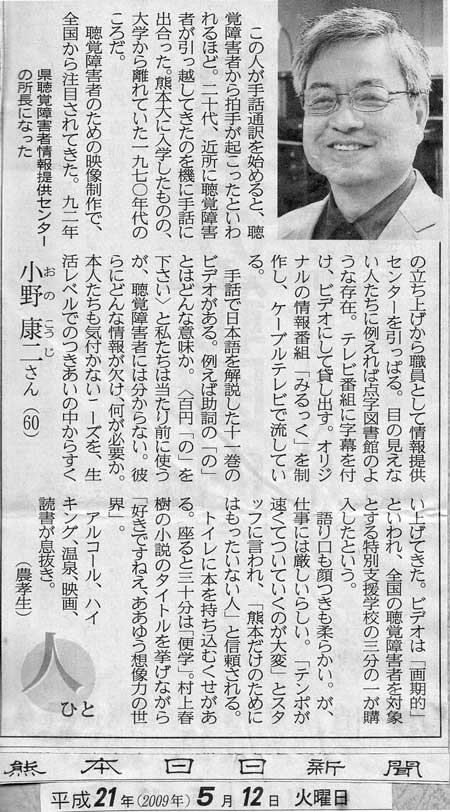 この人が手話通訳を始めると、聴
覚障害者から拍手が起こったといわ
れるほど。二十代、近所に聴覚障害
者が引っ越してきたのを機に手話に
出合った。熊本大に入学したものの、
大学から離れていた一九七〇年代の
ころだ。
聴覚障害者のための映像制作で、
全国から注目されてきた。九二年
の立ち上げから職員として情報提供
センターを引っぱる。目の見えな
い人たちに例えれば点字図書館のよ
うな存在。テレビ番組に字幕を付
け、ビデオにして貸し出す。オリジ
ナルの情報番組「みるっく」を制
作し、ケーブルテレビで流してい
る。
手話で日本語を解説した十一巻の
ビデオがある。例えば助詞の「の」
とはどんな意味か。〈百円「の」を
下さい〉と私たちは当たり前に使う
が、聴覚障害者には分からない。彼
らにどんな情報が欠け、何が必要か。
本人たちも気付かないニーズを、生
活レベルでのつきあいの中からすく
い上げてきた。ビデオは「画期的」
といわれ、全国の聴覚障害者を対象
とする特別支援学校の三分の一が購
入したという。
語り口も顔つきも柔らかい。が、
仕事には厳しいらしい。「テンポが
速くてついていくのが大変」とスタ
ッフに言われ、「熊本だけのために
はもったいない人」と信頼される。
トイレに本を持ち込むくせがあ
る。座ると三十分は「便学」。村上春
樹の小説のタイトルを挙げながら
「好きですねえ、ああゆう想像力の世
界」。
アルコール、ハイ
キング、温泉、映画、
読書が息抜き。
(農孝生)
県聴覚障害者情報提供センター
の所長になった
小野 康二さん (60)
おの こうじ
人
ひと
熊本日日新聞
平成21年(2009年)5月12日 火曜日